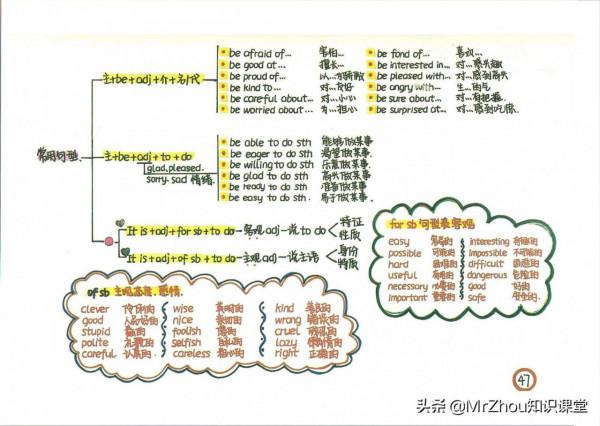 常用句型
主+be+adj+介+名/代
be afraid of... 害怕...
be good at... 擅长...
be proud of... 以...为骄傲
be kind to... 对...友好
be careful about... 对...小心
be worried about... 为...担心
be fond of... 喜欢...
be interested in... 对...感兴趣
be pleased with... 对...感到高兴
be angry with... 生...的气
be sure about... 对...有把握
be surprised at... 对...感到吃惊
主+be+adj+to+do
glad.pleased.
sorry. sad 情绪
be able to do sth 能够做某事
be eager to do sth 渴望做某事
be willing to do sth 乐意做某事
be glad to do sth 高兴做某事
be ready to do sth 准备做某事
be easy to do sth 易于做某事
It is+adj+for sb+to do—客观adj—说to do
特征
性质
It is+adj+of sb+to do—主观adj—说主语
身份
特质
for sb 句型表客观
easy 容易的 interesting 有趣的
possible 可能的 impossible 不可能的
hard 困难的 difficult 困难的
useful 有用的 dangerous 危险的
necessary 必要的 good 好的
important 重要的 safe 安全的
of sb 主观品质.感情
clever 伶俐的 wise 英明的 kind 善良的
good 人品好的 nice 亲切的 wrong 错误的
stupid 蠢的 foolish 傻的 cruel 残忍的
polite 礼貌的 selfish 自私的 lazy 懒惰的
careful 认真的 careless 粗心的 right 正确的
47
头条 @MrZhou知识课堂